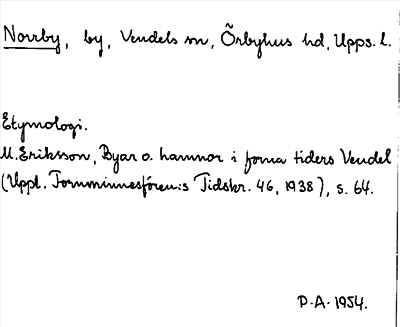 Norrby, by, Vendels sn, Örbyhus hd, Upps. l.
Etymologi.
M. Eriksson, Byar o. hamnor i forna tiders Vendel
(Uppl. Fornminnesfören:s Tidskr. 46, 1938), s. 64.
P.A. 1954.